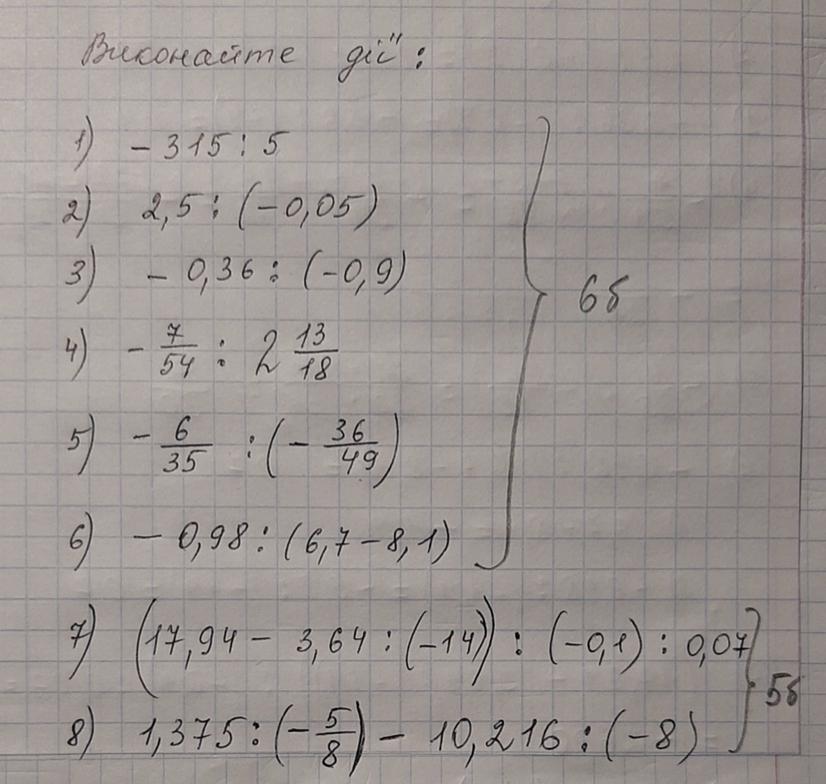 Виконайте дії:
1) - 315 : 5
2) 2,5 : (-0,05)
3) - 0,36 : (-0,9)
4) - 7/54 : 2 13/18
5) - 6/35 : (- 36/49)
6) - 0,98 : (6,7 - 8,1)
6б
7) (17,94 - 3,64 : (-14)) : (-0,1) : 0,07
8) 1,375 : (- 5/8) - 10,216 : (-8)
5б